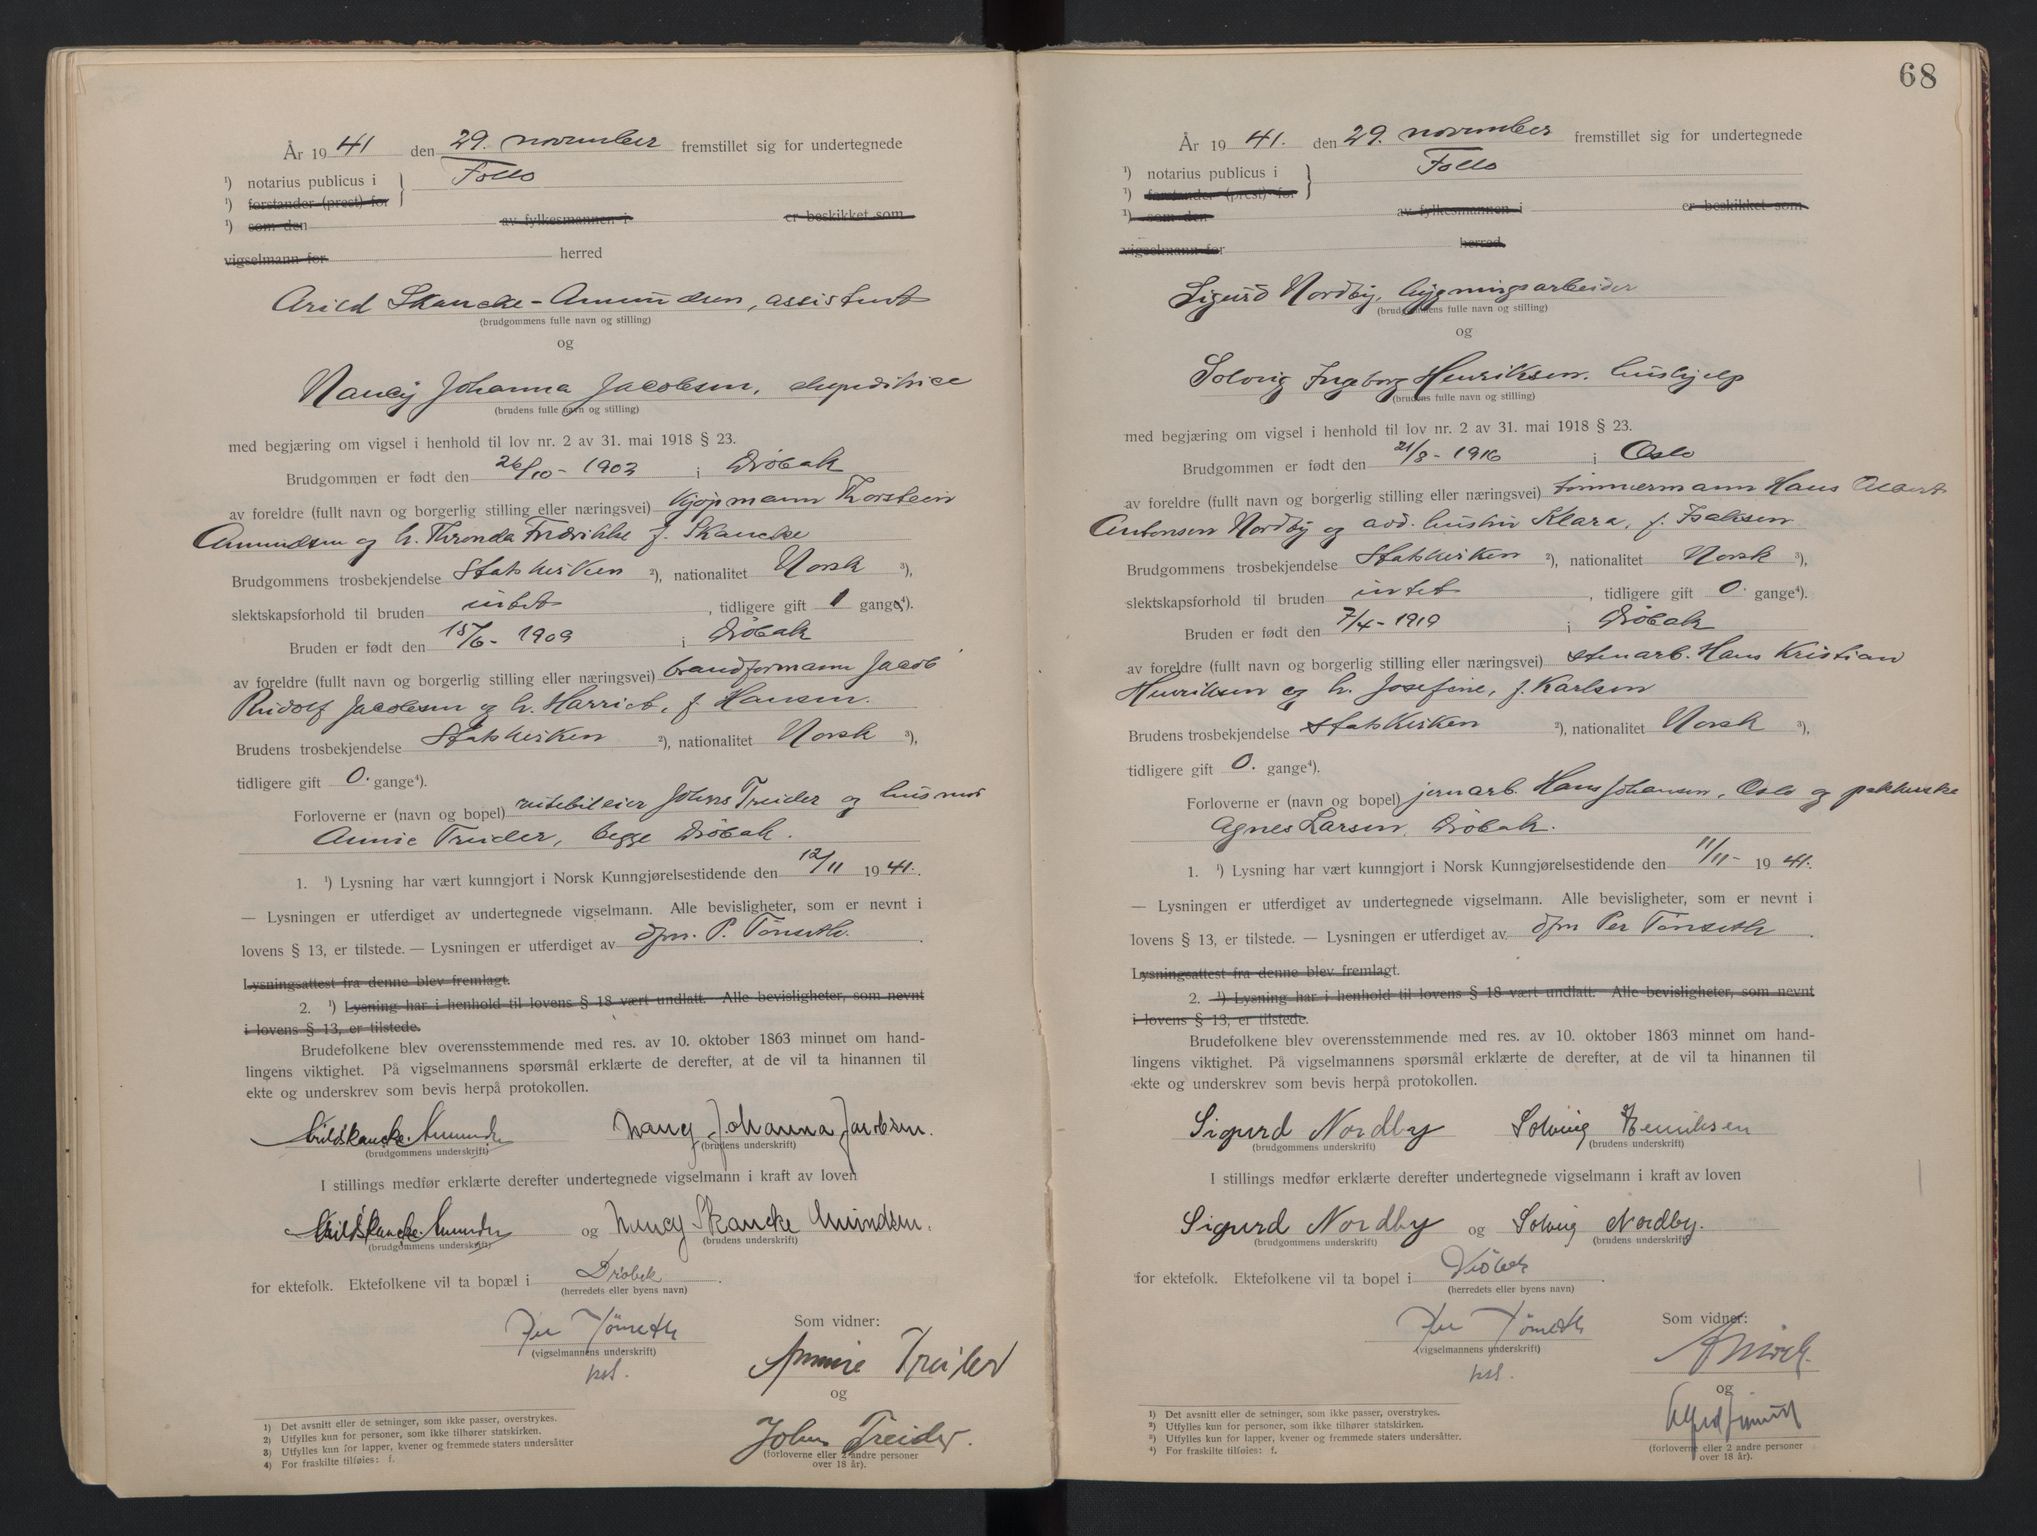 År 1941 den 29. november fremstillet sig for undertegnede
¹) notarius publicus i Follo
¹) forstander (prest) for
¹) som den av fylkesmannen i er beskikket som
vigselmann for herred
Arild Skancke-Amundsen, assistent
(brudgommens fulle navn og stilling)
og
Nancy Johanna Jacobsen, ekspeditrice
(brudens fulle navn og stilling)
med begjæring om vigsel i henhold til lov nr. 2 av 31. mai 1918 § 23.
Brudgommen er født den 26/10 - 1902 i Drøbak
av foreldre (fullt navn og borgerlig stilling eller næringsvei) kjøpmann Thorstein
Amundsen og h. Thronda Fredrikke f. Skancke
Brudgommens trosbekjendelse Statskirken ²), nationalitet Norsk ³),
slektskapsforhold til bruden intet, tidligere gift 1 gange⁴).
Bruden er født den 15/6 - 1909 i Drøbak
av foreldre (fullt navn og borgerlig stilling eller næringsvei) brandformann Jacob
Rudolf Jacobsen og h. Harriet, f. Hansen.
Brudens trosbekjendelse Statskirken ²), nationalitet Norsk ³),
tidligere gift 0. gange⁴).
Forloverne er (navn og bopel) rutebileier Johns Treider og husmor
Annie Treider, begge Drøbak.
1. ¹) Lysning har vært kunngjort i Norsk Kunngjørelsestidende den 12/11 1941.
— Lysningen er utferdiget av undertegnede vigselmann. Alle bevisligheter, som er nevnt i
lovens § 13, er tilstede. — Lysningen er utferdiget av dfm. P. Tønseth.
Lysningsattest fra denne blev fremlagt.
2. ¹) Lysning har i henhold til lovens § 18 vært undlatt. Alle bevisligheter, som nevnt
i lovens § 13, er tilstede.
Brudefolkene blev overensstemmende med res. av 10. oktober 1863 minnet om hand-
lingens viktighet. På vigselmannens spørsmål erklærte de derefter, at de vil ta hinannen til
ekte og underskrev som bevis herpå protokollen.
Arild Skancke Amundsen Nancy Johanna Jacobsen.
(brudgommens underskrift) (brudens underskrift)
I stillings medfør erklærte derefter undertegnede vigselmann i kraft av loven
Arild Skancke Amundsen og Nancy Skancke Amundsen.
(brudgommens underskrift) (brudens underskrift)
for ektefolk. Ektefolkene vil ta bopæl i Drøbak.
(herredets eller byens navn)
Per Tønseth Som vidner:
(vigselmannens underskrift) Annie Treider
kst. og
Johns Treider.
(forloverne eller 2 andre personer
over 18 år).
1) Det avsnitt eller de setninger, som ikke passer, overstrykes.
2) Utfylles kun for personer, som ikke tilhører statskirken.
3) Utfylles kun for lapper, kvener og fremmede staters undersåtter
4) For fraskilte tilføies: f.
68
År 1941. den 29. november fremstillet sig for undertegnede
¹) notarius publicus i Follo
¹) forstander (prest) for
¹) som den av fylkesmannen i er beskikket som
vigselmann for herred
Sigurd Nordby, bygningsarbeider
(brudgommens fulle navn og stilling)
og
Solvig Ingeborg Henriksen, hushjelp
(brudens fulle navn og stilling)
med begjæring om vigsel i henhold til lov nr. 2 av 31. mai 1918 § 23.
Brudgommen er født den 21/8 - 1916 i Oslo
av foreldre (fullt navn og borgerlig stilling eller næringsvei) tømmermann Hans Albert
Antonsen Nordby og avd. hustru Klara, f. Isaksen
Brudgommens trosbekjendelse Statskirken ²), nationalitet Norsk ³),
slektskapsforhold til bruden intet, tidligere gift 0. gange⁴).
Bruden er født den 7/4 - 1919 i Drøbak
av foreldre (fullt navn og borgerlig stilling eller næringsvei) stenarb. Hans Kristian
Henriksen og h. Josefine, f. Karlsen
Brudens trosbekjendelse Statskirken ²), nationalitet Norsk ³),
tidligere gift 0. gange⁴).
Forloverne er (navn og bopel) jernarb. Hans Johansen, Oslo og pakkerske
Agnes Larsen, Drøbak.
1. ¹) Lysning har vært kunngjort i Norsk Kunngjørelsestidende den 11/11 - 1941.
— Lysningen er utferdiget av undertegnede vigselmann. Alle bevisligheter, som er nevnt i
lovens § 13, er tilstede. — Lysningen er utferdiget av dfm Per Tønseth.
Lysningsattest fra denne blev fremlagt.
2. ¹) Lysning har i henhold til lovens § 18 vært undlatt. Alle bevisligheter, som nevnt
i lovens § 13, er tilstede.
Brudefolkene blev overensstemmende med res. av 10. oktober 1863 minnet om hand-
lingens viktighet. På vigselmannens spørsmål erklærte de derefter, at de vil ta hinannen til
ekte og underskrev som bevis herpå protokollen.
Sigurd Nordby Solveig Henriksen
(brudgommens underskrift) (brudens underskrift)
I stillings medfør erklærte derefter undertegnede vigselmann i kraft av loven
Sigurd Nordby og Solveig Nordby.
(brudgommens underskrift) (brudens underskrift)
for ektefolk. Ektefolkene vil ta bopel i Drøbak.
(herredets eller byens navn)
Per Tønseth Som vidner:
(vigselmannens underskrift)
kst. og
Alfred
(forloverne eller 2 andre personer
over 18 år).
¹) Det avsnitt eller de setninger, som ikke passer, overstrykes.
²) Utfylles kun for personer, som ikke tilhører statskirken.
³) Utfylles kun for lapper, kvener og fremmede staters undersåtter.
⁴) For fraskilte tilføies: f.